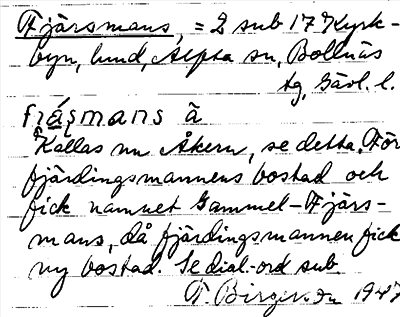 Fjärsmans, = 2 sub 17 Kyrk-
byn, lund, Alfta sn, Bollnäs
tg, Gävl. l.
fjäṣmans ä
Kallas nu Åkern, se detta. För
fjärdingsmannens bostad och
fick namnet Gammel-Fjärs-
mans, då fjärdingsmannen fick
ny bostad. Se dial.-ord sub.
T. Birgerson 1947